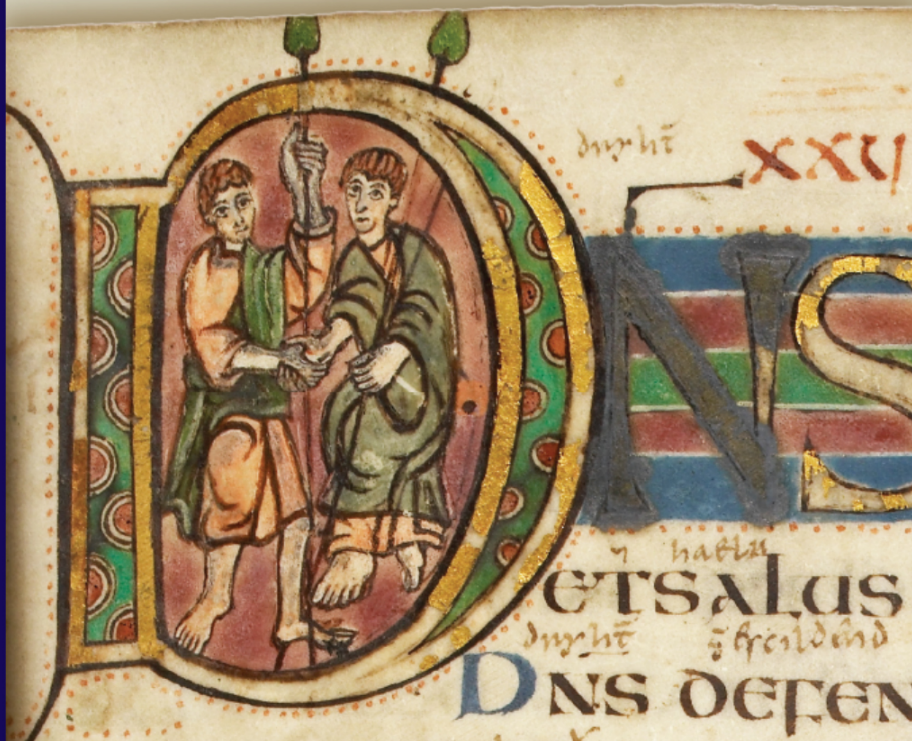 dryht̄ XXV
DNS
⁊ haelu
ETSALUS
dryht̄ gescildend
DNS DEFEN